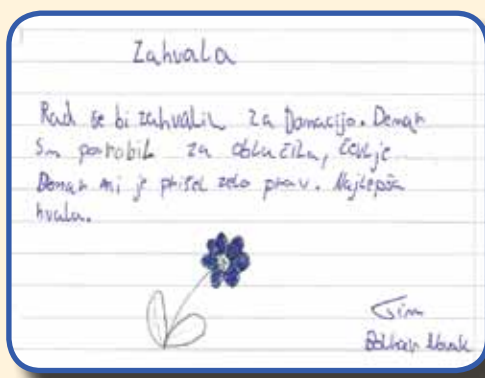 Zahvala
Rad se bi zahvalil za Donacijo. Denar
Sm porobil za oblačila, čevlje
Denar mi je prišel zelo prav. Najlepša
hvala.
Tim
Novak